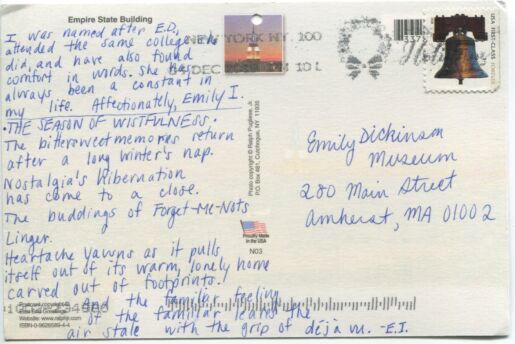 Empire State Building
I was named after E.D.,
attended the same college she
did, and have also found
comfort in words. She has
always been a constant in
my life. Affectionately, Emily I.
• THE SEASON OF WISTFULNESS •
The bittersweet memories return
after a long winter's nap.
Nostalgia's hibernation
has come to a close.
The buddings of Forget-Me-Nots
Linger.
Heartache yawns as it pulls
itself out of its warm, lonely home
carved out of footprints.
And the familiar feeling
of the familiar leaves the
air stale with the grip of déjà vu. -E.I.
Postcard copyright ©
Website: www.ralphjr.com
ISBN 0-9626589-4-4
Photo copyright © Ralph Pugliese, Jr.
P.O. Box 461, Cutchogue, NY 11935
Proudly Made
in the USA
N03
NEW YORK NY 100
USA FIRST-CLASS FOREVER
Emily Dickinson
Museum
280 Main Street
Amherst, MA 01002